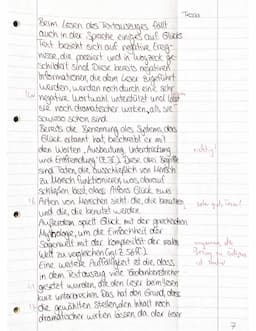 Thesa
Beim Lesen des Textauszuges fällt
auch in der Sprache einiges auf. Glücks
Text bezieht sich auf negative Ereig-
nisse, die passiert und in Woyzeck ge-
schildert sind. Diese bereits negativen
Informationen, die dem Leser zugeführt
werden, werden noch durch eine sehr
negative Wortwahl unterstützt und lässt
sie noch dramatischer wirken, als sie
sowieso schon sind.
Bereits die Benennung des Systems, das
Glück erkannt hat, beschreibt er mit
den Worten „Ausbeutung, Unterdrückung
und Entfremdung“ Diese drei Begriffe
sind Taten, die ausschließlich von Mensch
zu Mensch funktionieren, was darauf
schließen lässt, dass Alfons Glück zwei
Arten von Menschen sieht: die, die benutzen
und die, die benutzt werden.
Außerdem spielt Glück mit der griechischen
Mythologie, um die Einfachheit der
Sagenwelt mit der Komplexität der realen
Welt zu vergleichen
Eine weitere Auffälligkeit ist die, dass
in dem Textauszug viele Gedankenstriche
gesetzt wurden, die den Leser beim Lesen
kurz unterbrechen. Das hat den Grund, dass
die gewählten Stellen den Inhalt noch
dramatischer wirken lassen, da der Leser
richtig!
sehr gut,
7